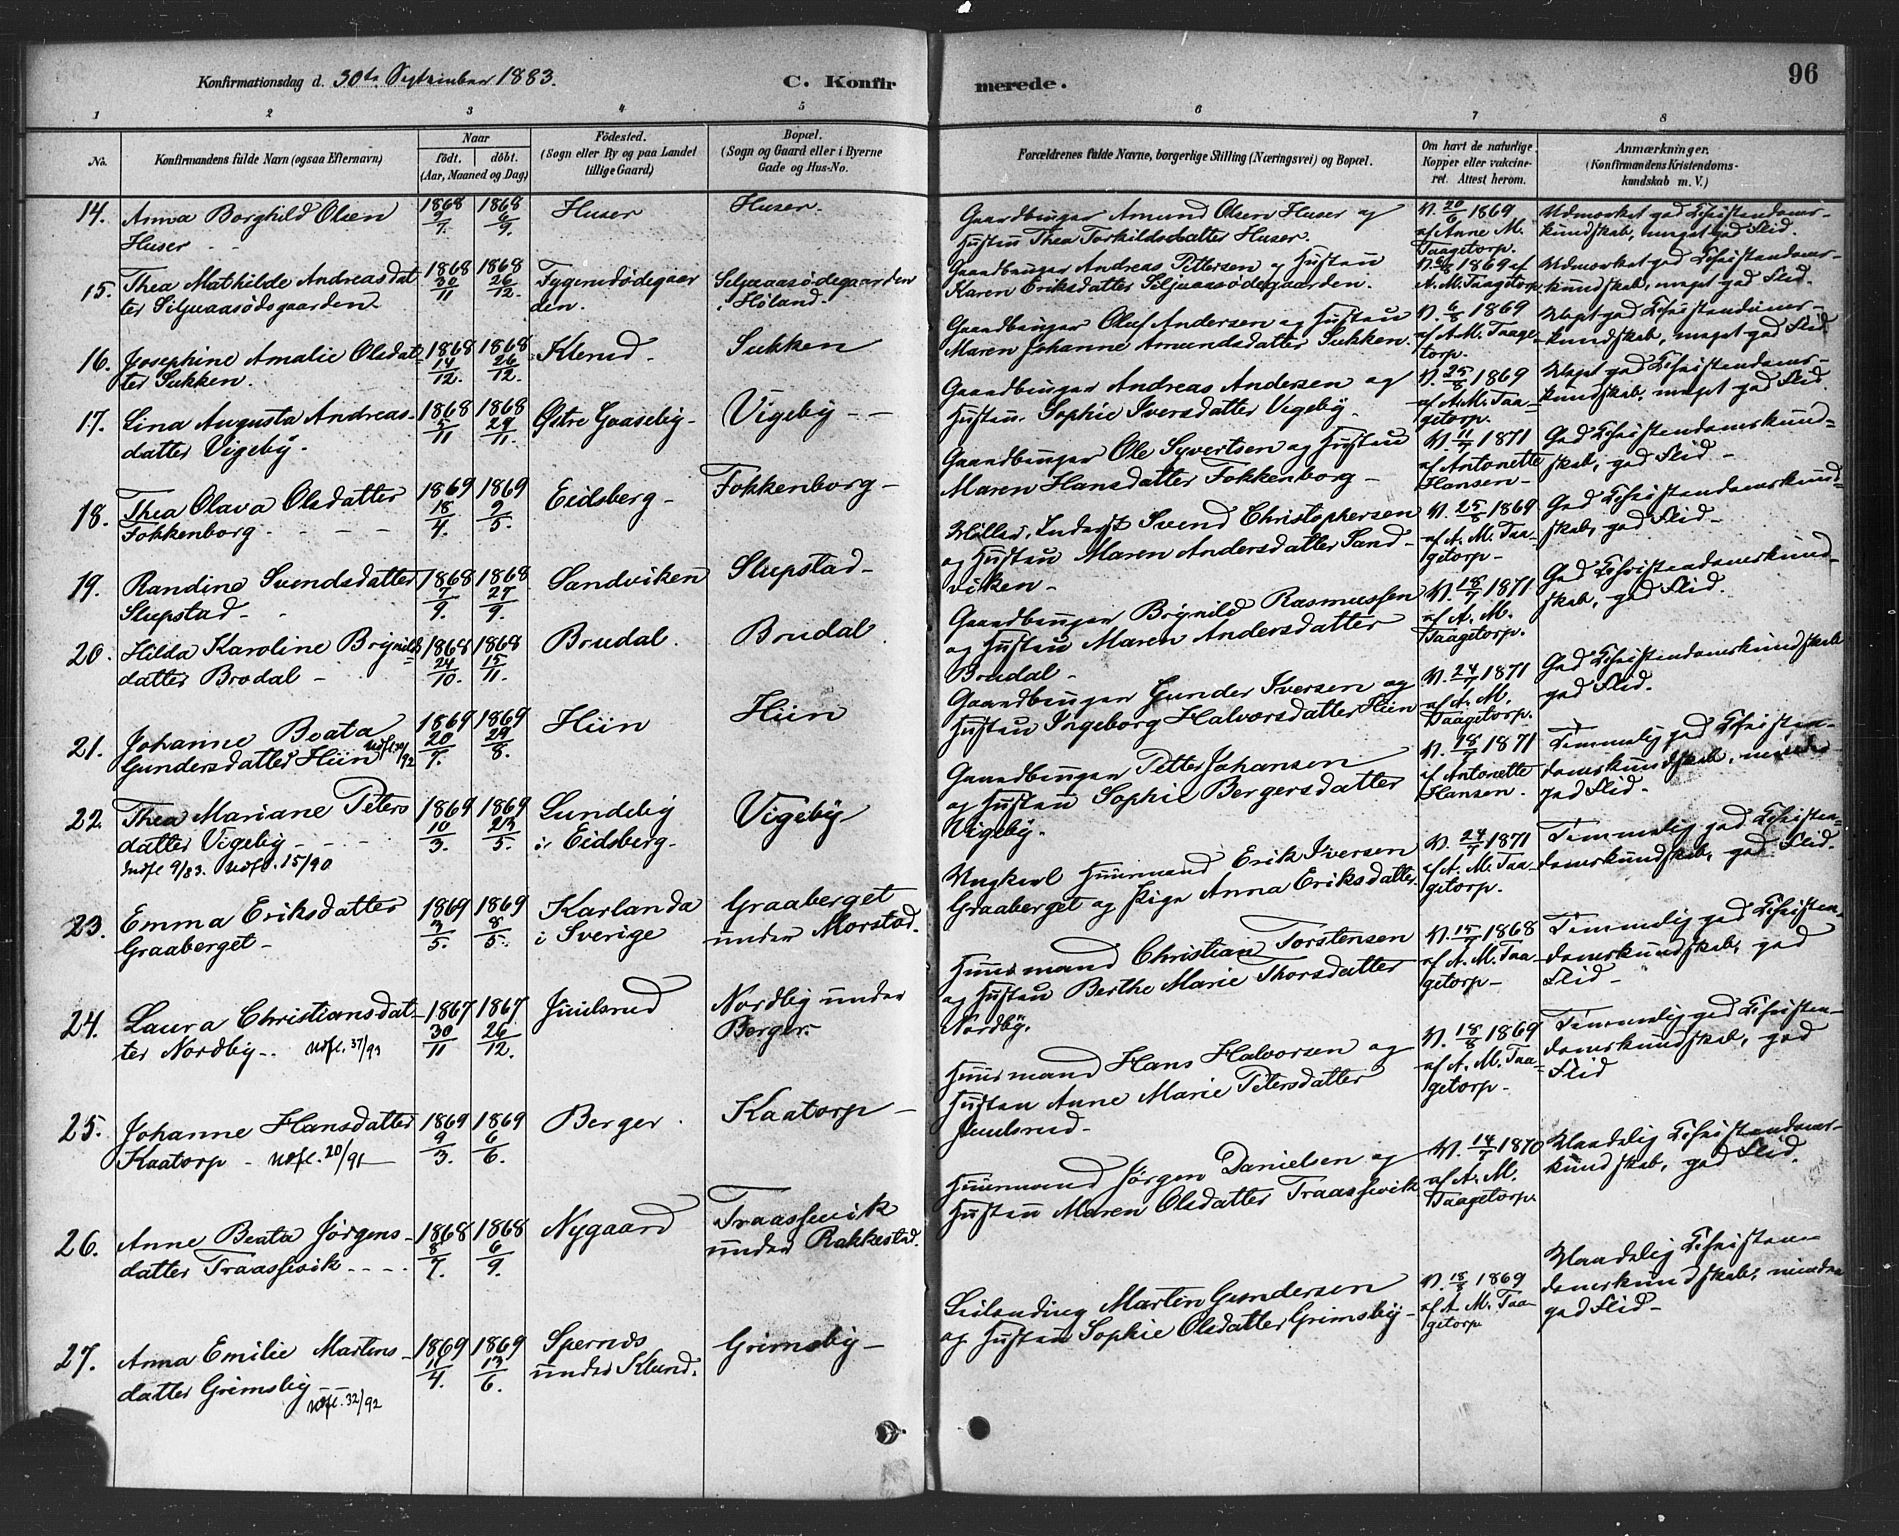 Konfirmationsdag d. 30te September 1883.
C. Konfirmerede.
96
1 2 3 4 5 6 7 8
No.
Konfirmandens fulde Navn (ogsaa Efternavn)
Naar
födt. döbt.
(Aar, Maaned og Dag)
Födested.
(Sogn eller By og paa Landet
tillige Gaard)
Bopæl.
(Sogn og Gaard eller i Byerne
Gade og Hus-No.
Forældrenes fulde Navne, borgerlige Stilling (Næringsvei) og Bopæl.
Om havt de naturlige
Kopper eller vakcine-
ret. Attest herom.
Anmærkninger.
(Konfirmandens Kristendoms-
kundskab m. V.)
14. Anna Borghild Olsen
Huser
1868 1868
Huser
Huser.
Gaardbruger Amund Olsen Huser og
Hustru Thea Torkildsdatter Huser.
V. 20/6 1869
af Anne M.
Taagetorp.
Udmærket god Christendoms-
kundskab, meget god Flid.
15. Thea Mathilde Andreasdat
ter Siljuaasödegaarden
1868 30/11 1868 26/12.
Siljuaasødegaarden
i Høland.
Gaardbruger Andreas Pettersen og Hustru
Karen Eriksdatter Siljuaasødegaarden.
1869 af
A. M. Taagetorp
Udmærket god Christendoms-
kundskab, meget god Flid.
16. Josephine Amalie Olsdat
ter Sukken.
1868 14/12. 1868 26/12.
Klerud.
Sukken
Gaardbruger Oluf Andersen og Hustru
Maren Johanne Amundsdatter Sukken.
V. 6/8 1869
af A. M. Taage-
torp.
Meget god Christendoms-
kundskab, meget god Flid.
17. Lina Augusta Andreas-
datter Vigeby.
1868 5/11 1868 29/11.
Østre Gaaseby-
Vigeby
Gaardbruger Andreas Andersen og
Hustru Sophie Iversdatter Vigeby.
V. 25/8 1869
af A. M. Taa-
getorp.
Meget god Christendoms-
kundskab, meget god Flid.
18. Thea Olava Olsdatter
Fokkenborg
1869 18/4. 1869 2/5.
Eidsberg-
Fokkenborg-
Gaardbruger Ole Syvertsen og Hustru
Maren Hansdatter Fokkenborg -
V. 11/7 1871
af Antonette
Hansen-
God Christendomskund-
skab, god Flid-
19. Randine Svendsdatter
Slupstad
1868 7/9. 1868 27/9.
Sandviken
Slupstad-
Svend Christophersen
og Hustru Maren Andersdatter Sand-
viken-
V. 25/8 1869
af A. M. Taa-
getorp-
God Christendomskund-
skab, god Flid-
20. Hilda Karoline Brynilds
datter Brodal
1868 24/10. 1868 15/11.
Brudal.
Brudal
Gaardbruger Brynild Rasmussen
og Hustru Maren Andersdatter
Brudal-
V. 18/7 1871
af A. M.
Taagetorp.
God Christendomskund-
skab, god Flid.
21. Johanne Beata
Gundersdatter Hiin
1869 20/7. 1869 29/8.
Hiin
Hiin
Gaardbruger Gunder Iversen og
Hustru Ingeborg Halvorsdatter Hiin
V. 24/7 1871
af A. M.
Taagetorp.
God Christendomskundskab
god Flid.
22. Thea Mariane Peters
datter Vigeby
Indfl 9/83. Udfl. 15/90
1869 10/3. 1869 23/5.
Lundeby
i Eidsberg-
Vigeby
Gaardbruger Petter Johansen
og Hustru Sophie Bergersdatter
Vigeby.
V. 18/7 1871
af Antonette
Hansen.
Temmelig god Christen-
domskundskab, mindre
god Flid-
23. Emma Eriksdatter
Graaberget-
1869 3/5. 1869 8/5.
Karlanda
i Sverige
Graaberget
under Morstad.
Ungkarl Huusmand Erik Iversen
Graaberget og Pige Anna Eriksdatter
V. 24/7 1871
af A. M. Taa-
getorp.
Temmelig god Christen-
domskundskab, god Flid.
24. Laura Christiansdat-
ter Nordby-. Udfl. 37/93
1867 30/11 1867 26/12.
Juulsrud
Nordby under
Berger-
Huusmand Christian Torstensen
og Hustru Berthe Marie Thorsdatter
Nordby.
V. 15/7 1868
af A. M. Taa-
getorp-
Temmelig god Christen-
domskundskab, god
Flid-
25. Johanne Hansdatter
Kaatorp - Udfl. 20/91
1869 9/3. 1869 6/6.
Berger.
Kaatorp-
Huusmand Hans Halvorsen og
Hustru Anne Marie Petersdatter
Juulsrud-
V. 18/8 1869
af A. M. Taa-
getorp-
Temmelig god Christen-
domskundskab, god
Flid
26. Anne Beata Jørgens-
datter Traassevik
1868 8/7. 1868 6/9.
Nygaard
Traassevik
under Rakkestad.
Huusmand Jørgen Danielsen og
Hustru Maren Olsdatter Traassevik
V. 14/7 1870
af A. M.
Taagetorp.
Maadelig Christendoms-
kundskab, god Flid.
27. Anna Emilie Martins-
datter Grimsby
Udfl. 32/92
1869 11/4. 1869 13/6.
under Klund.
Grimsby-
Leilænding Martin Gundersen
og Hustru Sophie Olsdatter Grimsby-
V. 18/8 1869
af A. M. Taa-
getorp
Maadelig Christen-
domskundskab, mindre
god Flid-